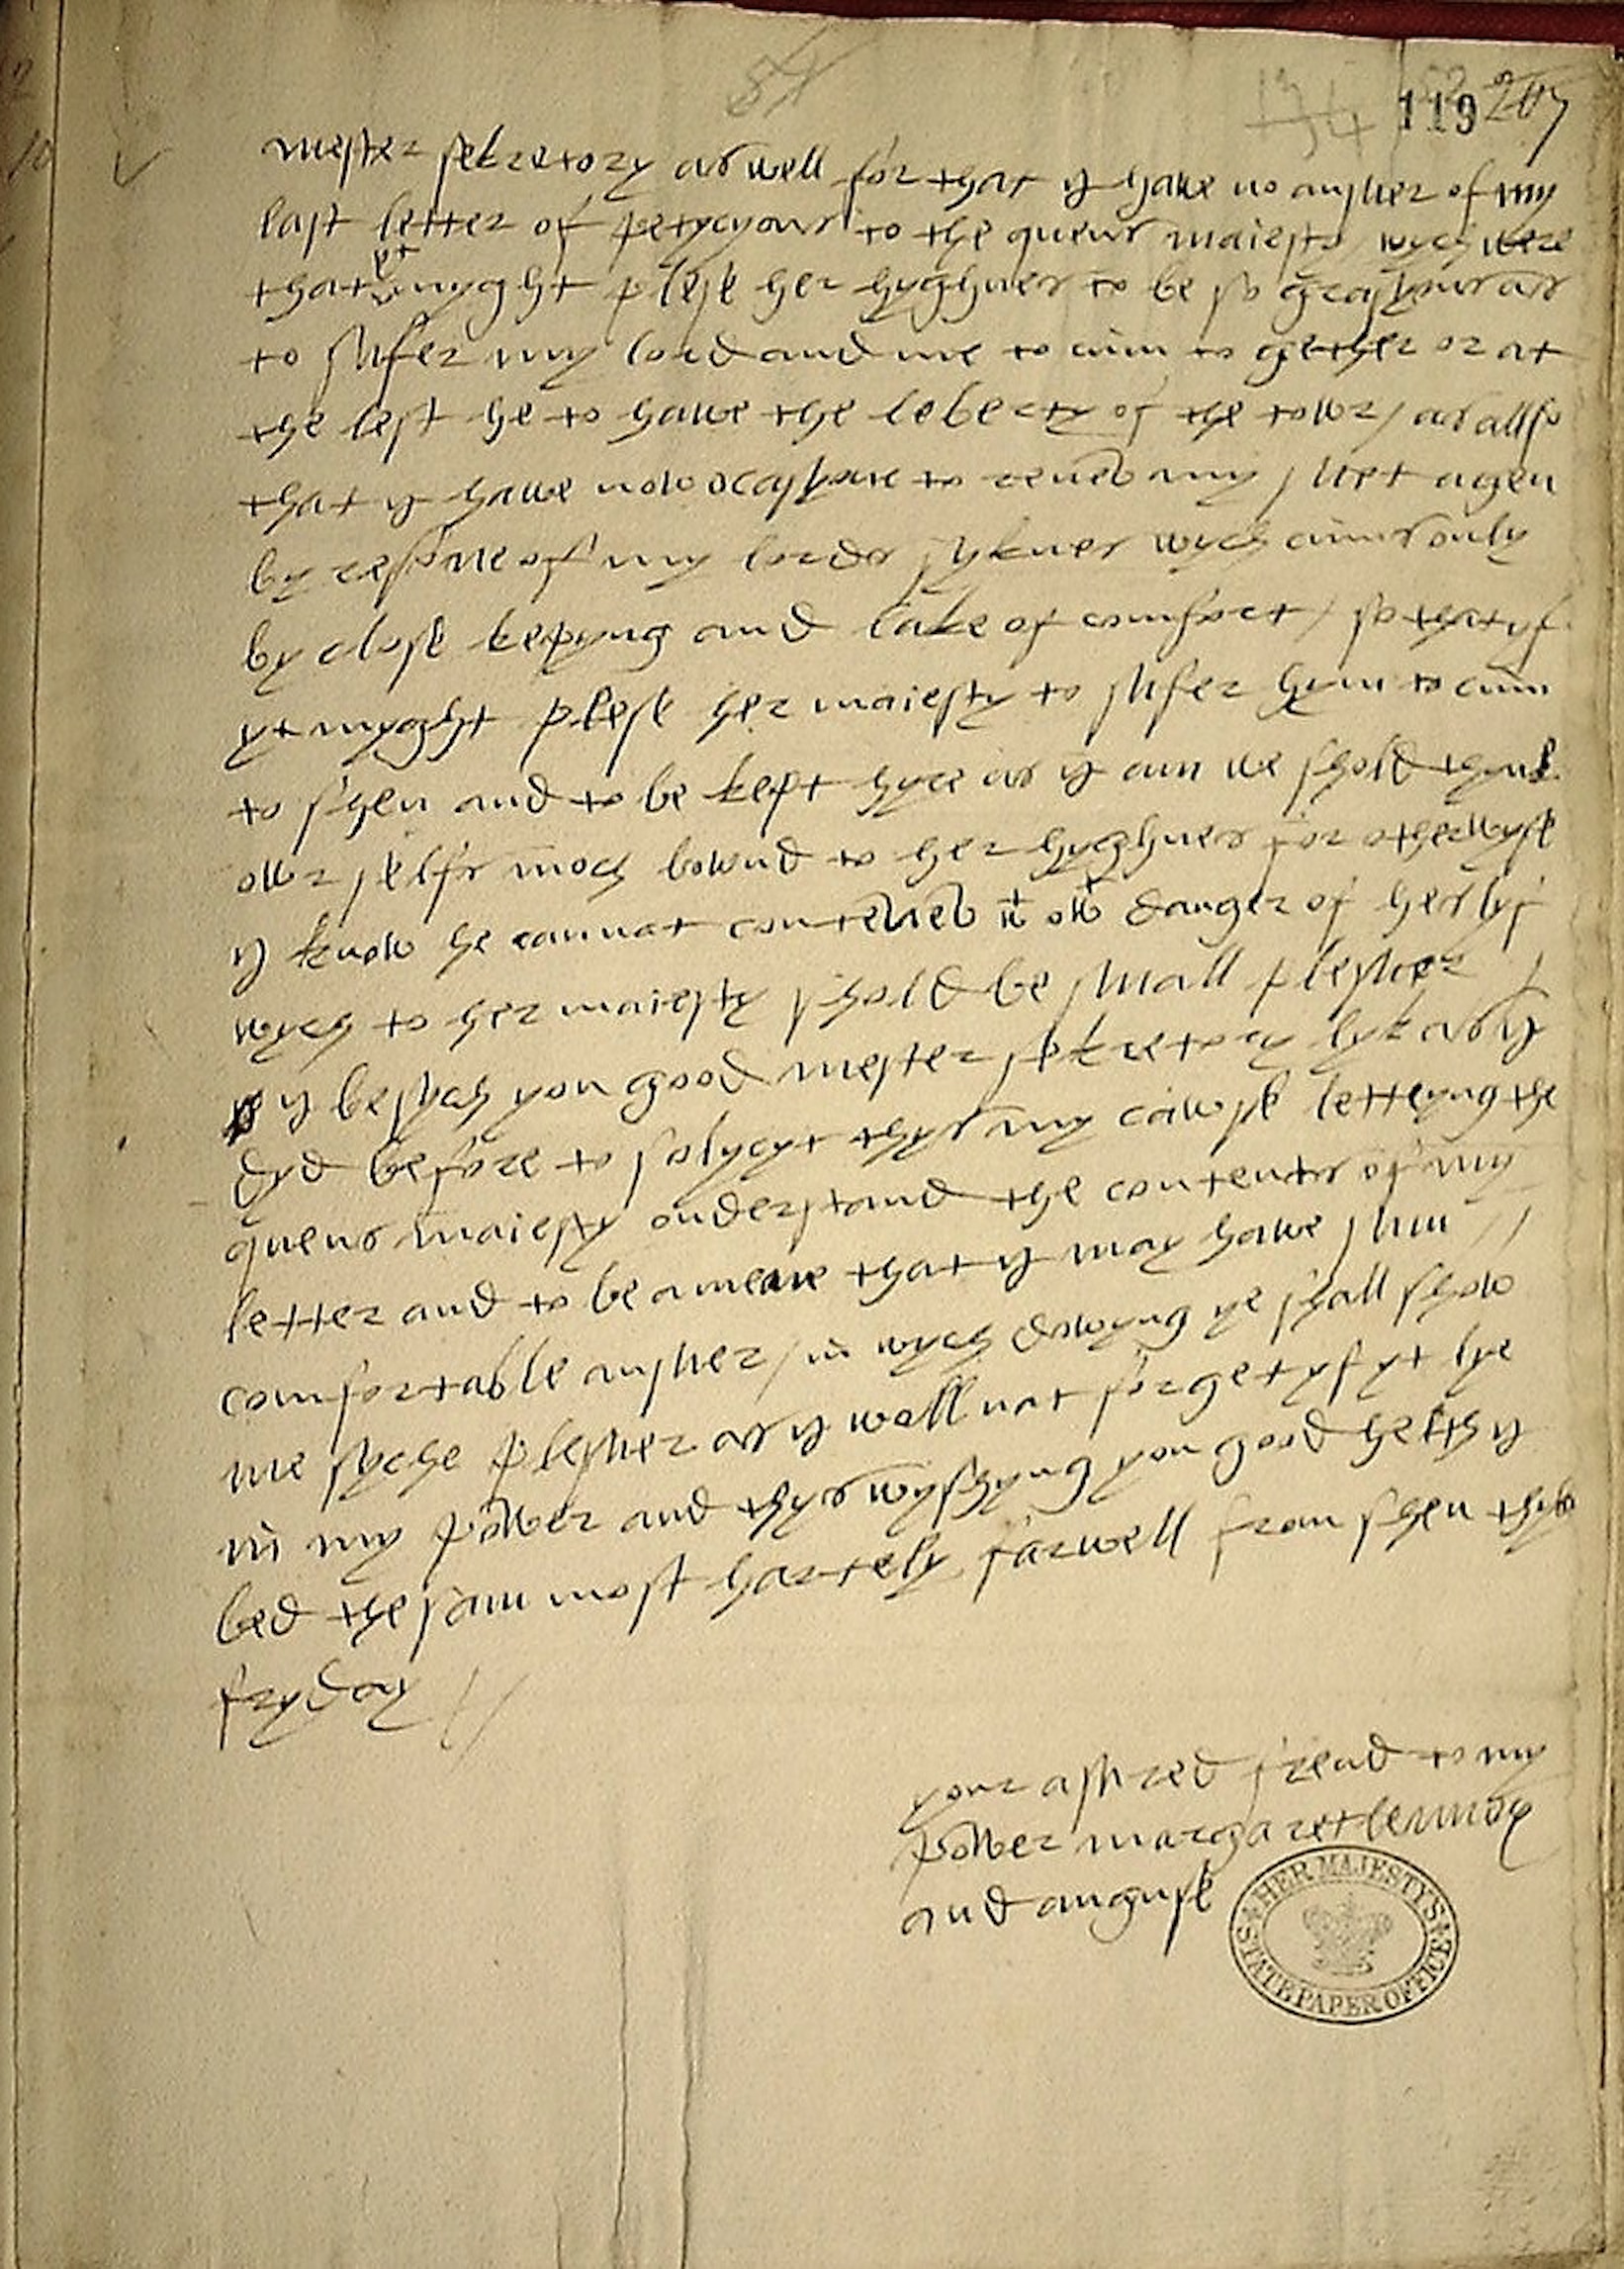 119 207
mester sekretory as well for that y have no answer of my
last letter of petycyons to the quens maiesty wych were
that yt myght plese her hyghnes to be so gracyous as
to sufer my lord and me to cum to gether or at
the lest he to have the leberty of the towr / as allso
that y have now ocasyone to renew my suet agen
by resone of my lordes syknes wych cums only
by close kepyng and lake of comfort / so that yf
yt myght plese her maiesty to sufer hym to cum
to shen and to be kept hyre as y am we shold thynk
owr selfs moch bownd to her hyghnes for otherwyse
y know he cannat contenew wt owt danger of hes lyf
wych to her maiesty shold be small plesuer /
y besych you good mester sekretory lyk as y
dyd before to solycyt thys my cawse letteyng the
quens maiesty onderstand the contents of my
letter and to be a meane that y may have sum //
comfortable answer / in wych dowyng ye shall show
me syche plesuer as y woll nat forget yf yt lye
in my power and thys wyshyng you good helth y
bed the sam most hartely farwell from shen thys
fryday //
your asured frend to my
power margaret lennox
and anguse
HER MAJESTY'S
STATE PAPER OFFICE